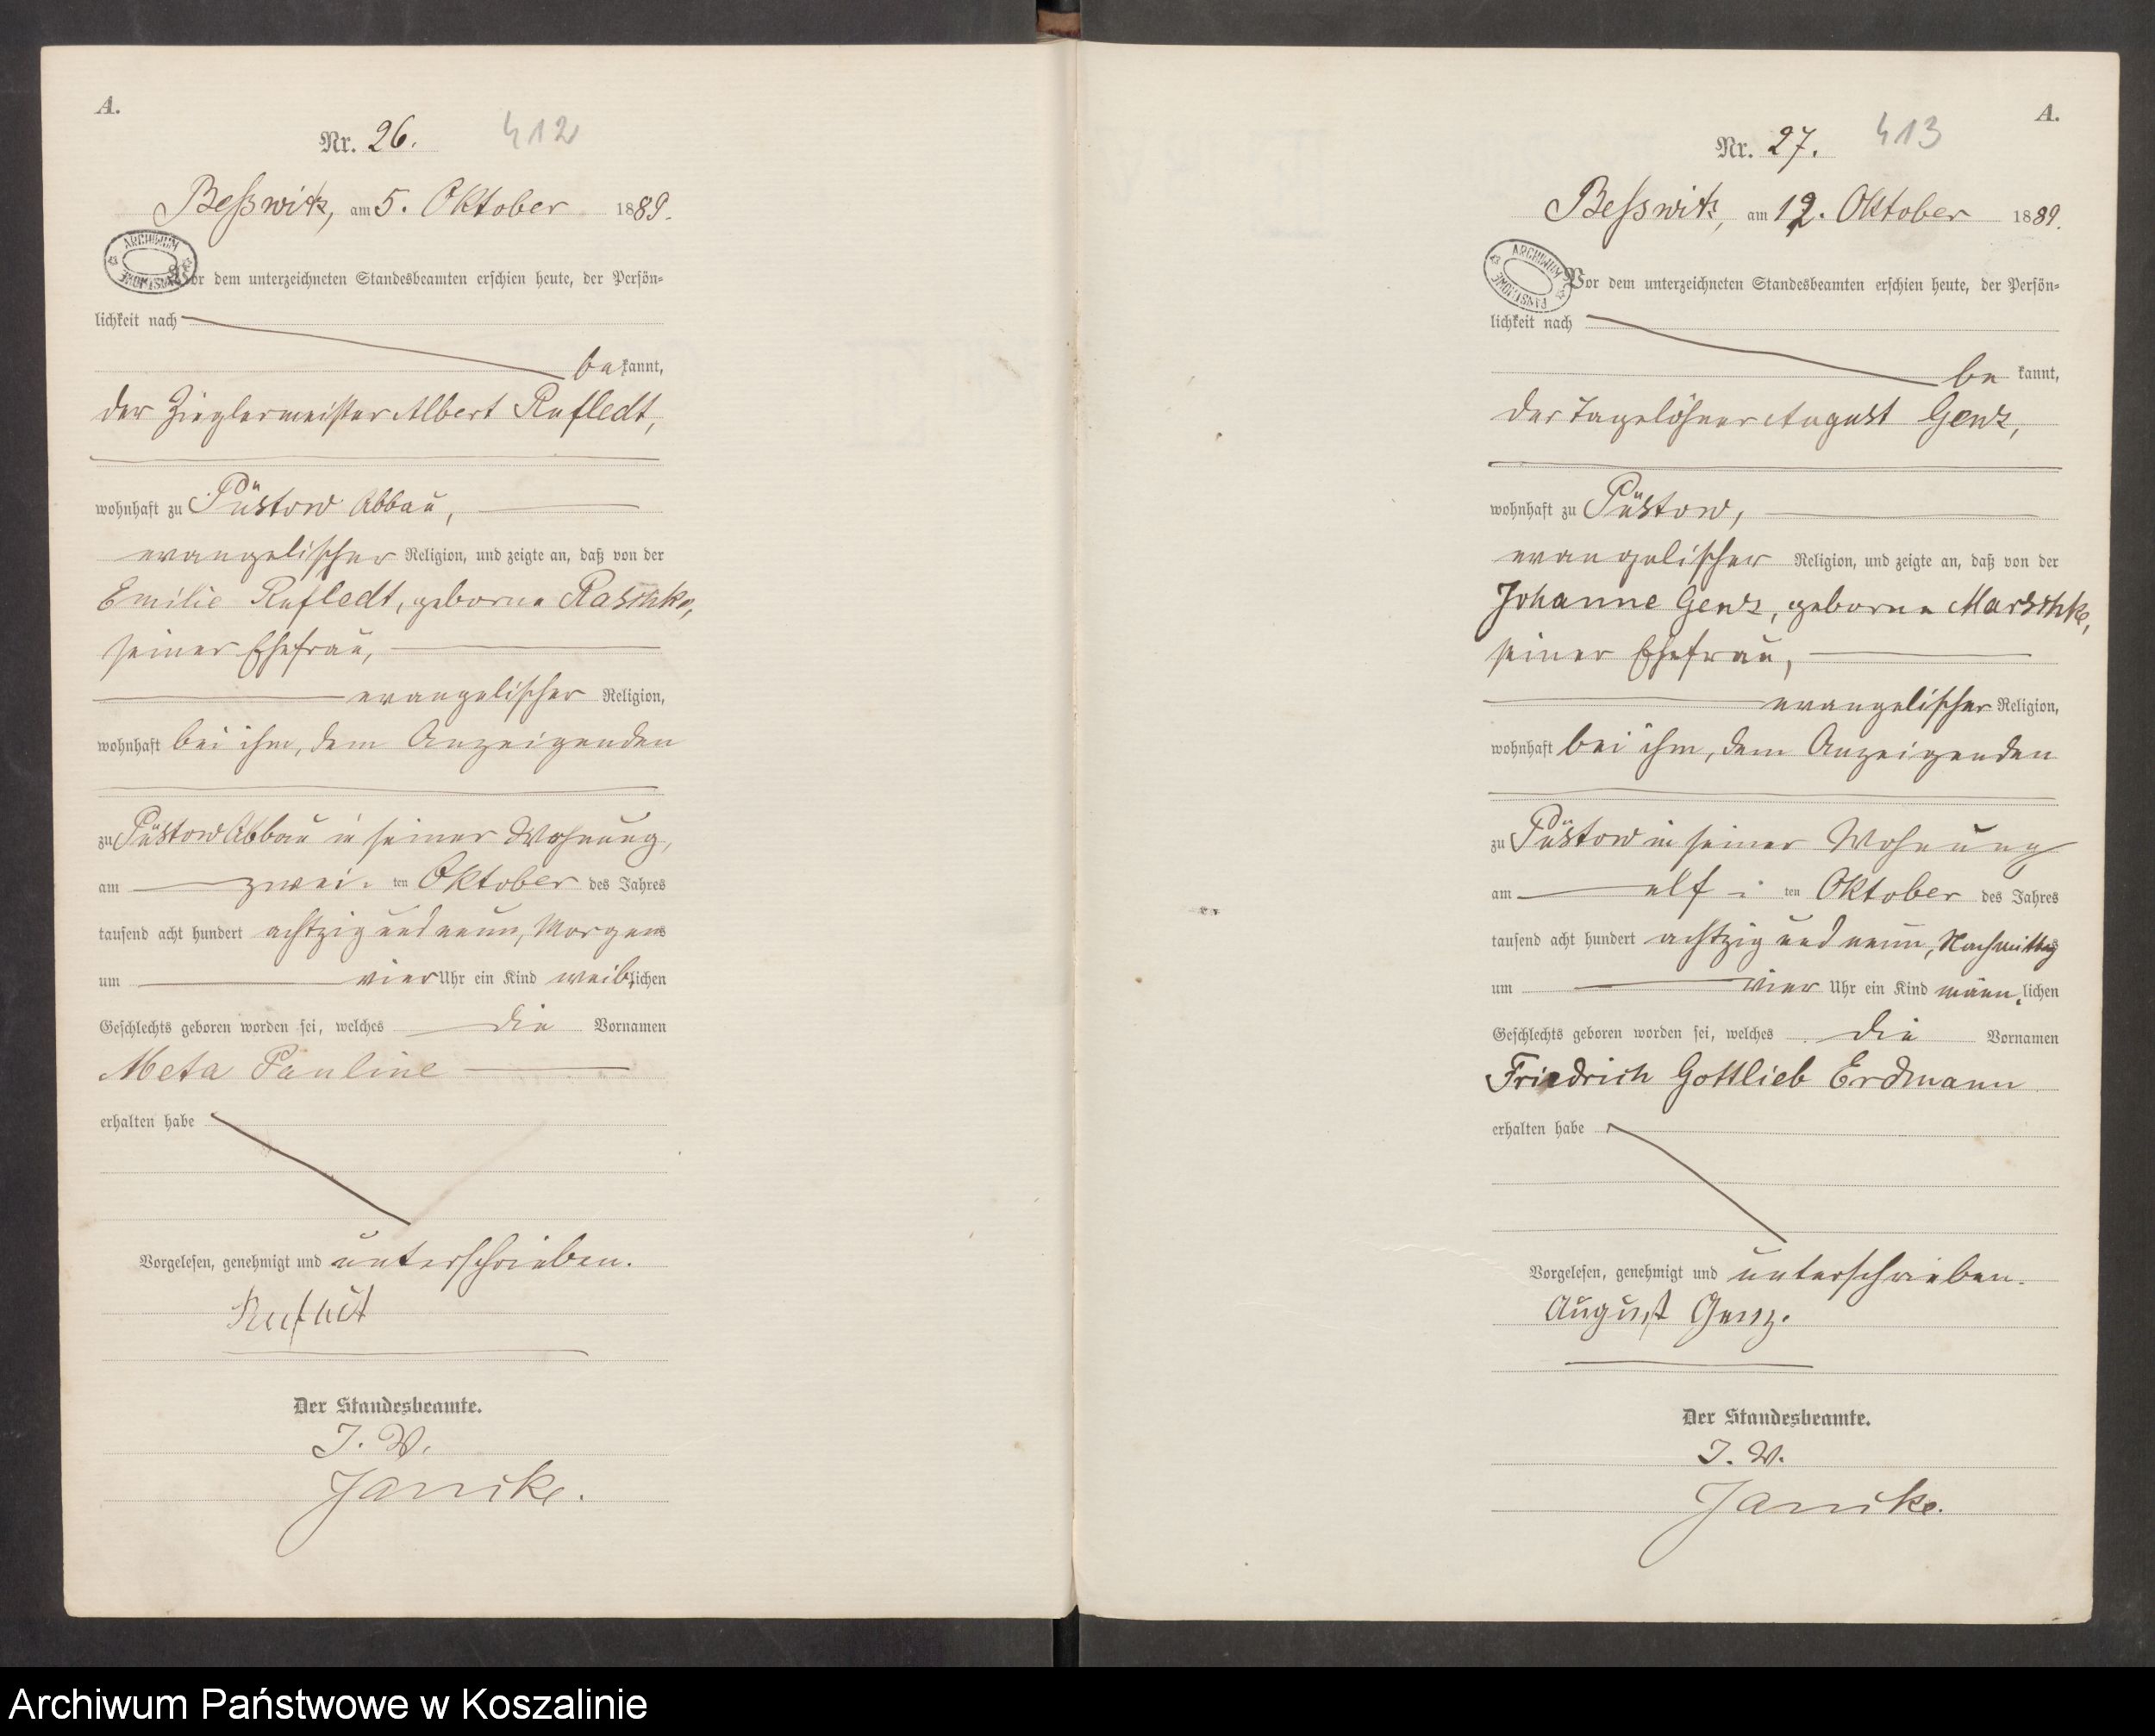 A.
Nr. 26. 412
Beßwitz, am 5. Oktober 1889.
ARCHIWUM PAŃSTWOWE
Vor dem unterzeichneten Standesbeamten erschien heute, der Persön-
lichkeit nach
bekannt,
der Zieglermeister Albert Rufledt,
wohnhaft zu Püstow Abbau,
evangelischer Religion, und zeigte an, daß von der
Emilie Rufledt, geborne Raschke,
seiner Ehefrau,
evangelischer Religion,
wohnhaft bei ihm, dem Anzeigenden
zu Püstow Abbau in seiner Wohnung,
am zwei ten Oktober des Jahres
tausend acht hundert achtzig und neun, Morgens
um vier Uhr ein Kind weiblichen
Geschlechts geboren worden sei, welches die Vornamen
Meta Pauline
erhalten habe
Vorgelesen, genehmigt und unterschrieben.
Der Standesbeamte.
J. V.
Janike.
A.
Nr. 27. 413
Beßwitz, am 12. Oktober 1889.
ARCHIWUM PAŃSTWOWE
Vor dem unterzeichneten Standesbeamten erschien heute, der Persön-
lichkeit nach
be kannt,
der Tagelöhner August Genz,
wohnhaft zu Püstow,
evangelischer Religion, und zeigte an, daß von der
Johanne Genz, geborne Marschke,
seiner Ehefrau,
evangelischer Religion,
wohnhaft bei ihm, dem Anzeigenden
zu Püstow in seiner Wohnung
am elf ten Oktober des Jahres
tausend acht hundert achtzig und neun, Nachmittag
um vier Uhr ein Kind männlichen
Geschlechts geboren worden sei, welches die Vornamen
Friedrich Gottlieb Erdmann
erhalten habe
Vorgelesen, genehmigt und unterschrieben.
August Genz.
Der Standesbeamte.
J. V.
Janike.
Archiwum Państwowe w Koszalinie